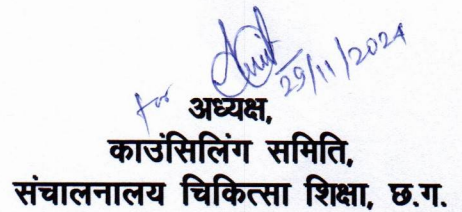 for 29/11/2024
अध्यक्ष,
काउंसिलिंग समिति,
संचालनालय चिकित्सा शिक्षा, छ.ग.